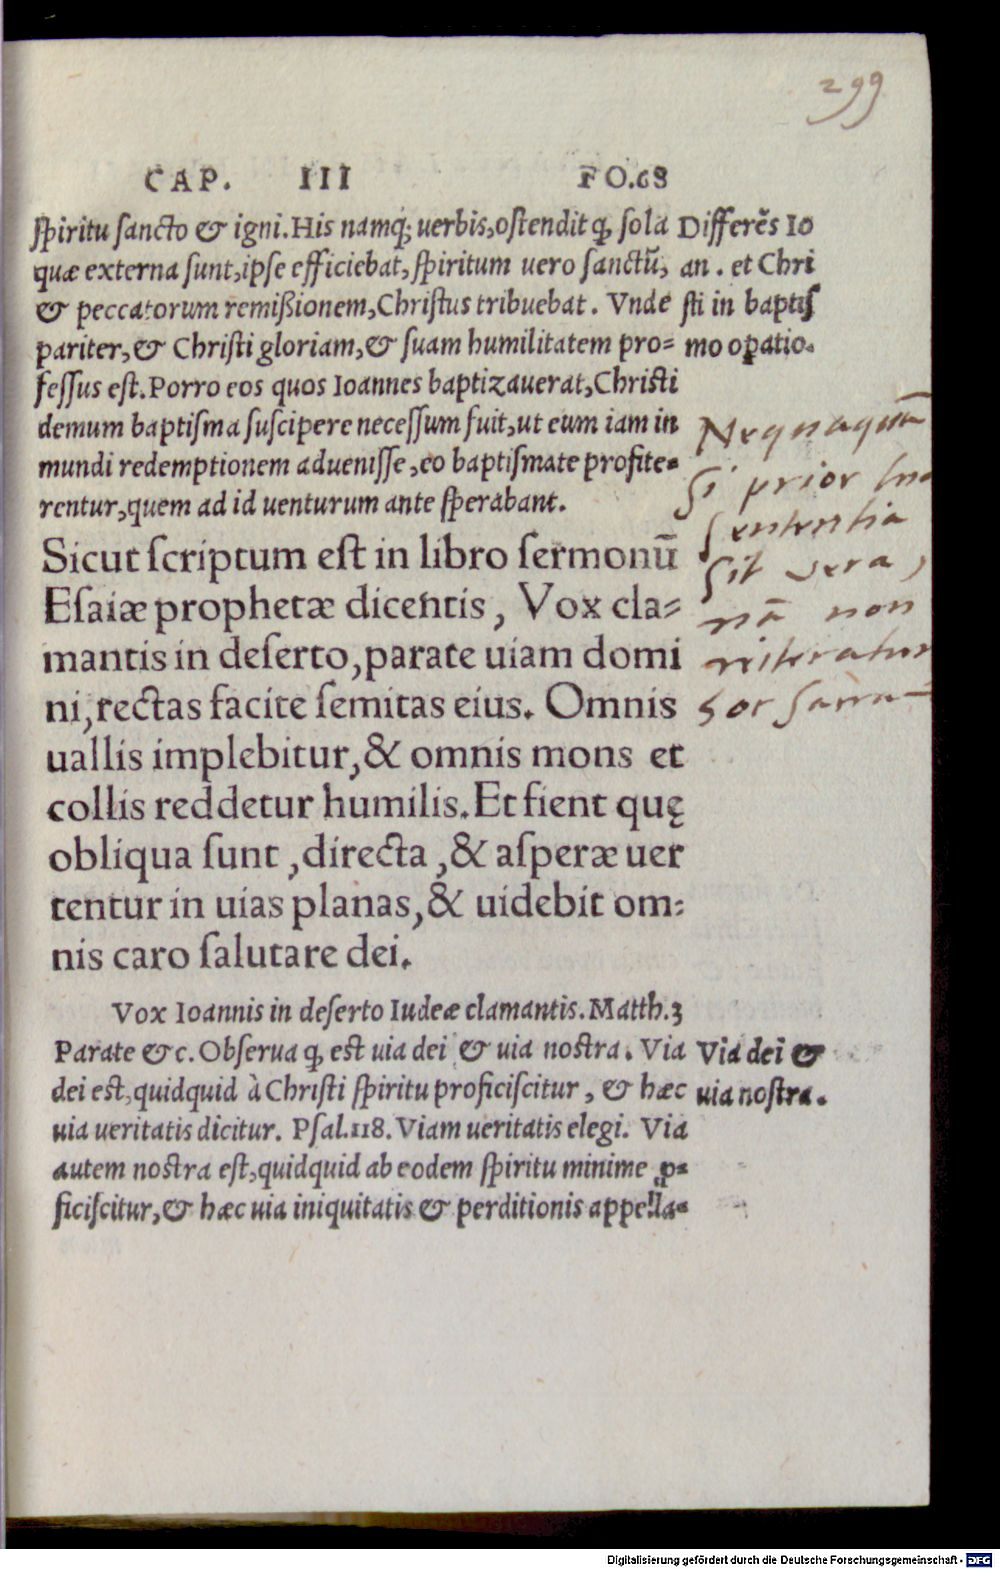 299
CAP. III FO.68
ſpiritu ſancto & igni. His namq; uerbis, oſtendit ꝙ ſola
quæ externa ſunt, ipſe efficiebat, ſpiritum uero ſanctũ,
& peccatorum remißionem, Chriſtus tribuebat. Vnde
pariter, & Chriſti gloriam, & ſuam humilitatem pro-
feſſus eſt. Porro eos quos Ioannes baptizauerat, Chriſti
demum baptiſma ſuſcipere neceſſum fuit, ut eum iam in
mundi redemptionem adueniſſe, eo baptiſmate profite-
rentur, quem ad id uenturum ante ſperabant.
Differẽs Io
an. et Chri
ſti in baptiſ
mo oꝑatio.
Nequaquã
ſi prior
ſententia
ſit vera,
nã non
reiteratur
hoc
Sicut ſcriptum eſt in libro ſermonũ
Eſaiæ prophetæ dicentis, Vox cla-
mantis in deſerto, parate uiam domi
ni, rectas facite ſemitas eius. Omnis
uallis implebitur, & omnis mons et
collis reddetur humilis. Et fient quę
obliqua ſunt, directa, & aſperæ uer
tentur in uias planas, & uidebit om-
nis caro ſalutare dei.
Vox Ioannis in deſerto Iudeæ clamantis. Matth.3
Parate &c. Obſerua ꝙ eſt uia dei & uia noſtra. Via
dei eſt, quidquid à Chriſti ſpiritu proficiſcitur, & hæc
uia ueritatis dicitur. Pſal.118. Viam ueritatis elegi. Via
autem noſtra eſt, quidquid ab eodem ſpiritu minime ꝓ-
ficiſcitur, & hæc uia iniquitatis & perditionis appella-
Via dei &
uia noſtra.
Digitalisierung gefördert durch die Deutsche Forschungsgemeinschaft - DFG